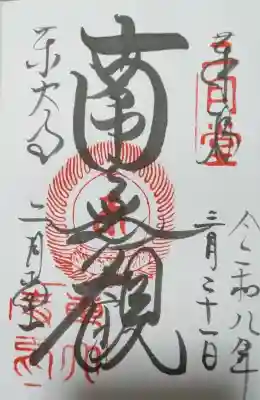 奉拝
二月堂
令和八年
三月三十一日
南無観
東大寺
二月堂